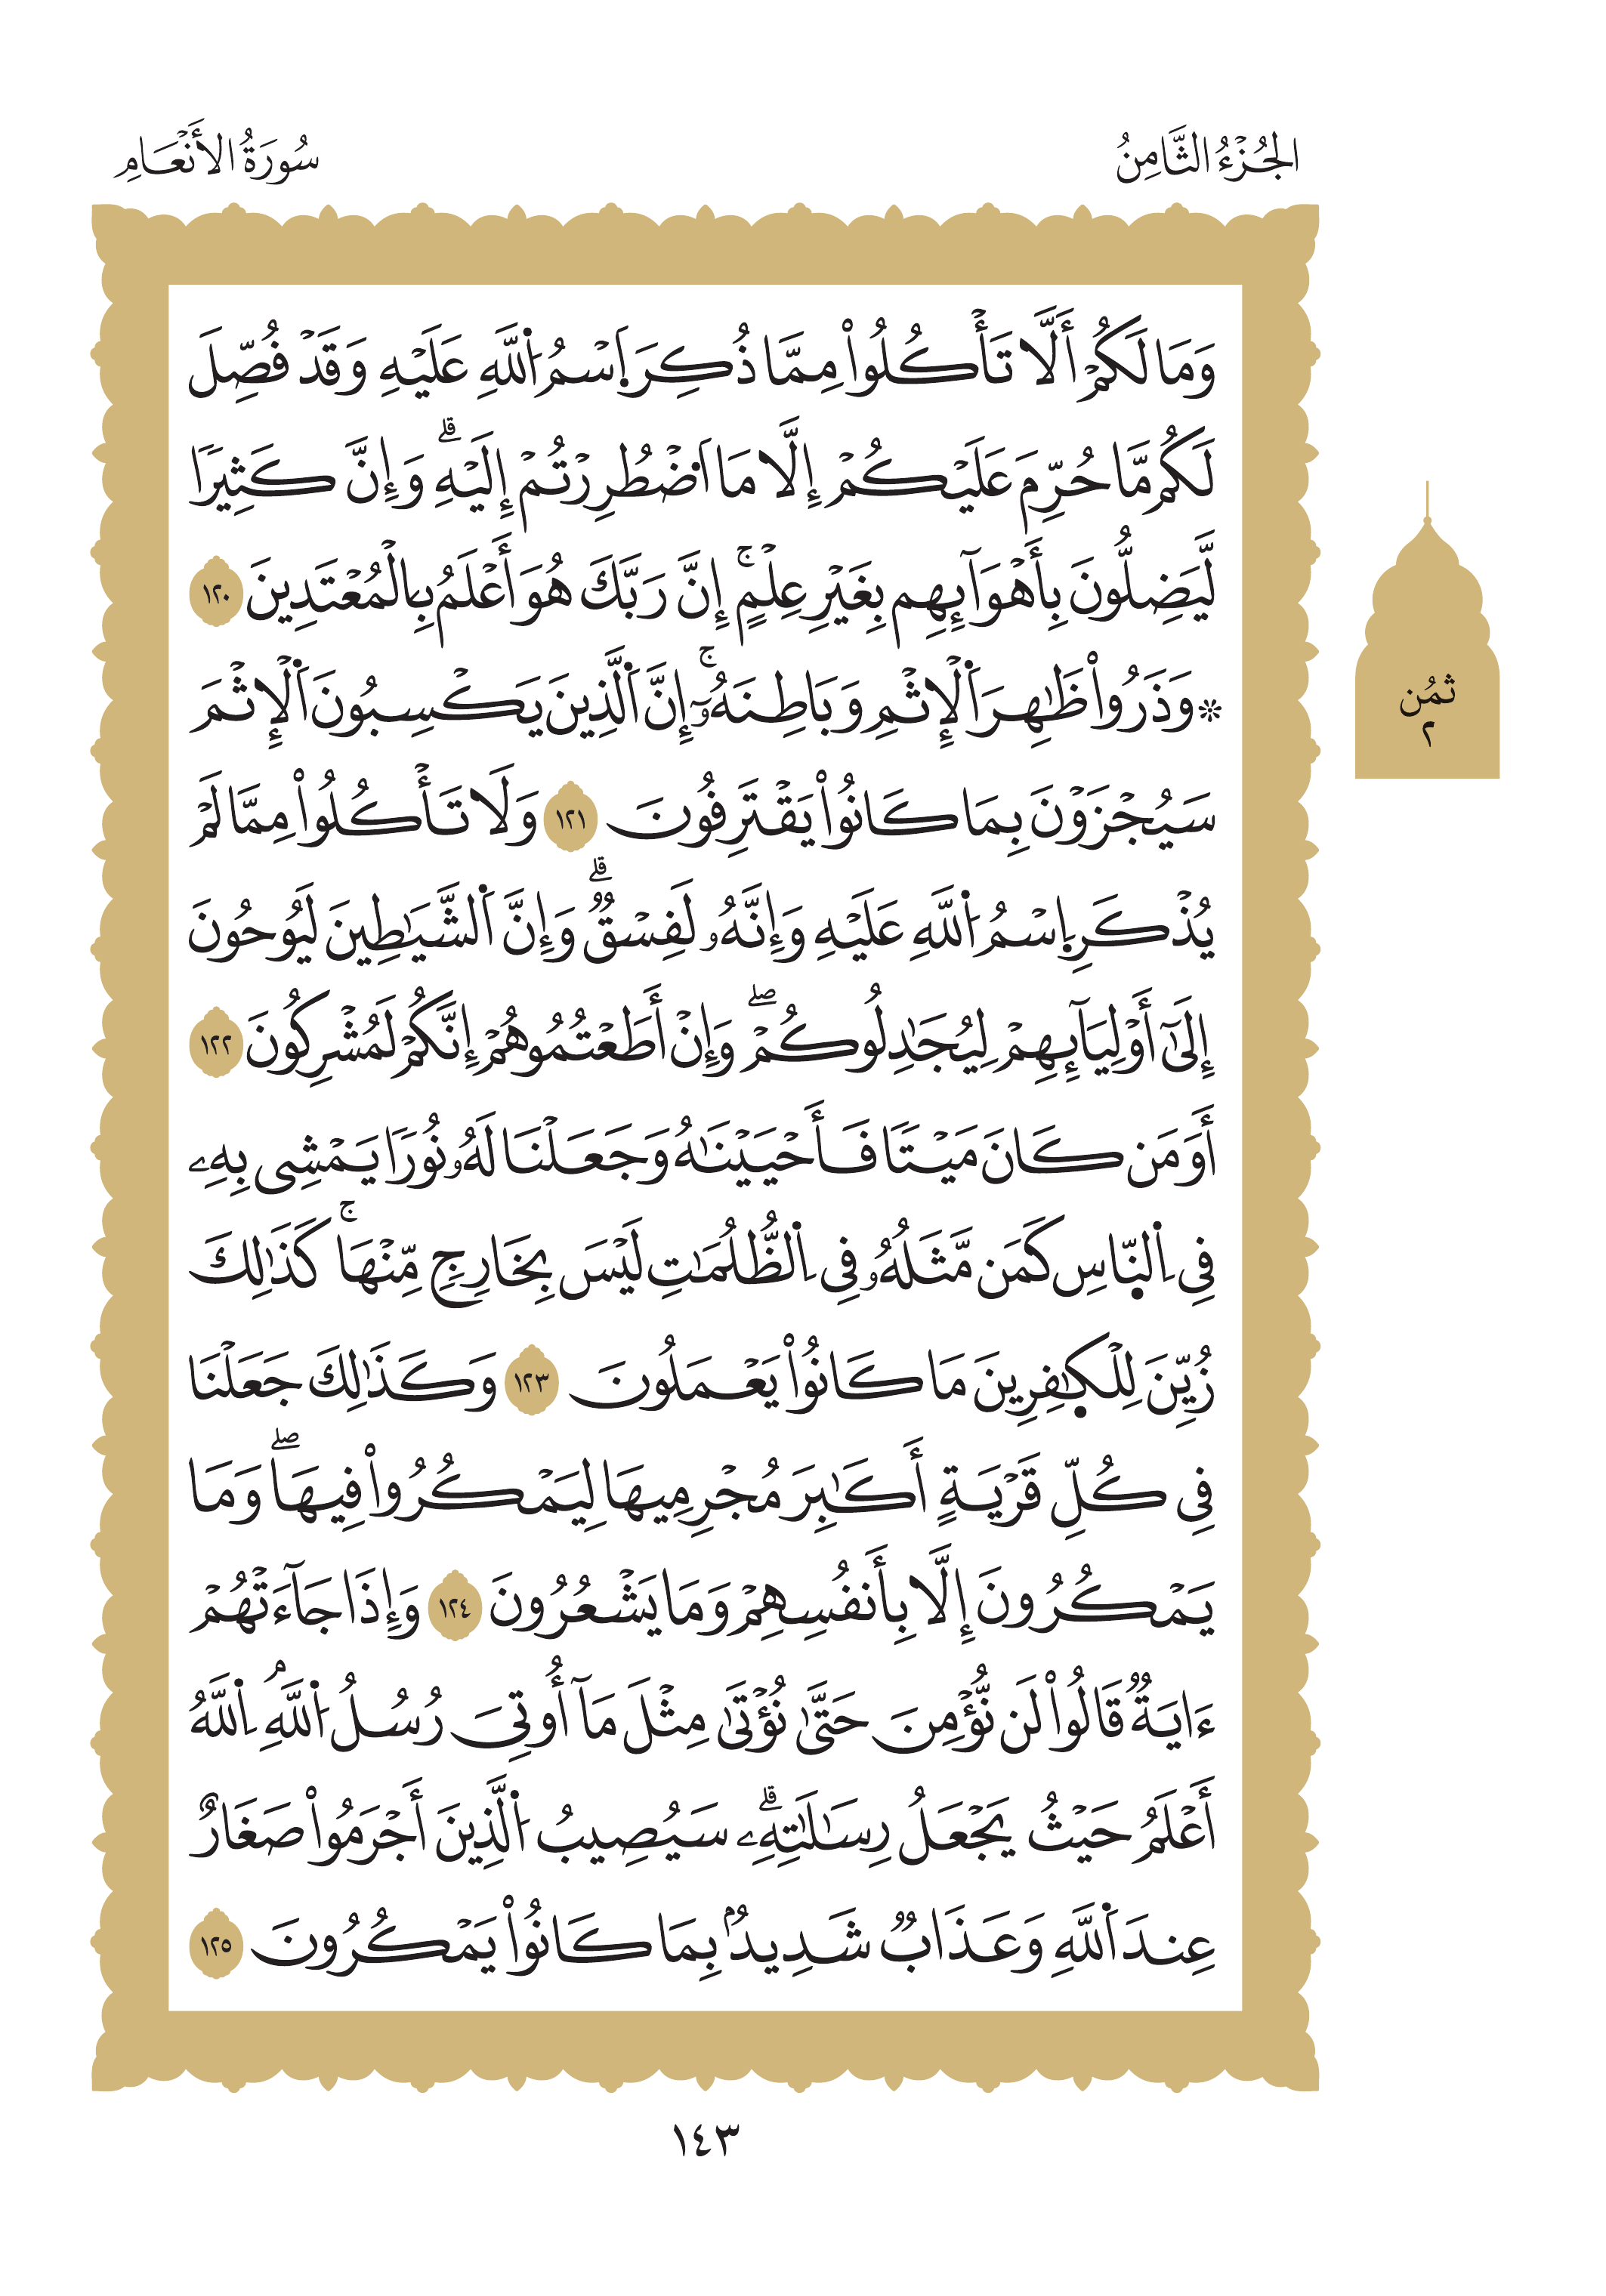 الجُزْءُ الثَّامِنُ
سُورَةُ الأَنْعَامِ
وَمَا لَكُمْۡ أَلَّا تَأۡكُلُواْ مِمَّا ذُكِرَ اَ۪سۡمُ اُ۬للَّهِ عَلَيۡهِ وَقَدۡ فُصِّلَ
لَكُم مَّا حُرِّمَ عَلَيۡكُمۡ إِلَّا مَا اَ۟ضۡطُرِرۡتُمۡ إِلَيۡهِۗ وَإِنَّ كَثِيرٗا
لَّيَضِلُّونَ بِأَهۡوَآئِهِم بِغَيۡرِ عِلۡمٍۚ إِنَّ رَبَّكَ هُوَ أَعۡلَمُ بِالۡمُعۡتَدِينَ ١٢٠
۞ وَذَرُواْ ظَٰهِرَ اَ۬لۡإِثۡمِ وَبَاطِنَهُۥٓۚ إِنَّ اَ۬لَّذِينَ يَكۡسِبُونَ اَ۬لۡإِثۡمَ
سَيُجۡزَوۡنَ بِمَا كَانُواْ يَقۡتَرِفُونَ ١٢١ وَلَا تَأۡكُلُواْ مِمَّا لَمۡ
يُذۡكَرِ اِ۪سۡمُ اُ۬للَّهِ عَلَيۡهِ وَإِنَّهُۥ لَفِسۡقٞۗ وَإِنَّ اَ۬لشَّيَٰطِينَ لَيُوحُونَ
إِلَىٰٓ أَوۡلِيَآئِهِمۡ لِيُجَٰدِلُوكُمۡۖ وَإِنۡ أَطَعۡتُمُوهُمۡ إِنَّكُمۡ لَمُشۡرِكُونَ ١٢٢
أَوَمَن كَانَ مَيۡتٗا فَأَحۡيَيۡنَٰهُ وَجَعَلۡنَا لَهُۥ نُورٗا يَمۡشِي بِهِۦ
فِي اِ۬لنّ۪اسِ كَمَن مَّثَلُهُۥ فِي اِ۬لظُّلُمَٰتِ لَيۡسَ بِخَارِجٖ مِّنۡهَاۚ كَذَٰلِكَ
زُيِّنَ لِلۡكٰ۪فِرِينَ مَا كَانُواْ يَعۡمَلُونَ ١٢٣ وَكَذَٰلِكَ جَعَلۡنَا
فِي كُلِّ قَرۡيَةٍ أَكَٰبِرَ مُجۡرِمِيهَا لِيَمۡكُرُواْ فِيهَاۖ وَمَا
يَمۡكُرُونَ إِلَّا بِأَنفُسِهِمۡ وَمَا يَشۡعُرُونَ ١٢٤ وَإِذَا جَآءَتۡهُمۡ
ءَايَةٞ قَالُواْ لَن نُّؤۡمِنَ حَتَّىٰ نُؤۡتَىٰ مِثۡلَ مَآ أُوتِيَ رُسُلُ اُ۬للَّهِۘ اِ۬للَّهُ
أَعۡلَمُ حَيۡثُ يَجۡعَلُ رِسَٰلَٰتِهِۦۗ سَيُصِيبُ اُ۬لَّذِينَ أَجۡرَمُواْ صَغَارٌ
عِندَ اَ۬للَّهِ وَعَذَابٞ شَدِيدُۢ بِمَا كَانُواْ يَمۡكُرُونَ ١٢٥
ثُمُن
٢
١٤٣